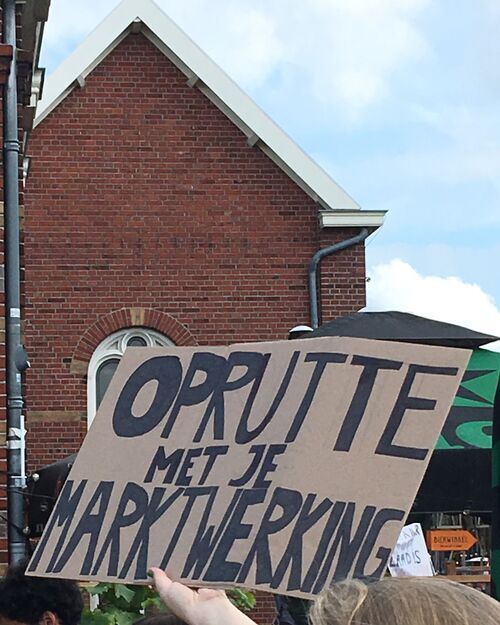 OPRUTTE
MET JE
MARKTWERKING
BIERWINKEL